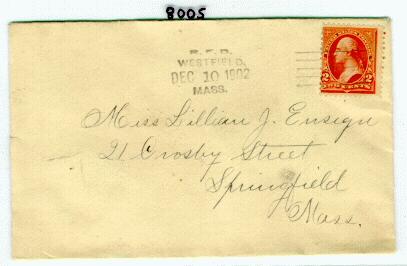 8005
R. F. D.
WESTFIELD,
DEC 10 1902
MASS.
2 2
Miss Lillian J. Ensign
21 Crosby Street
Springfield
Mass.